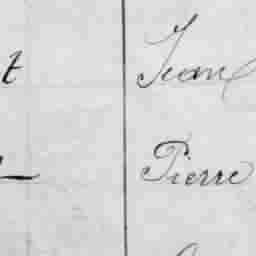 t Jean
Pierre